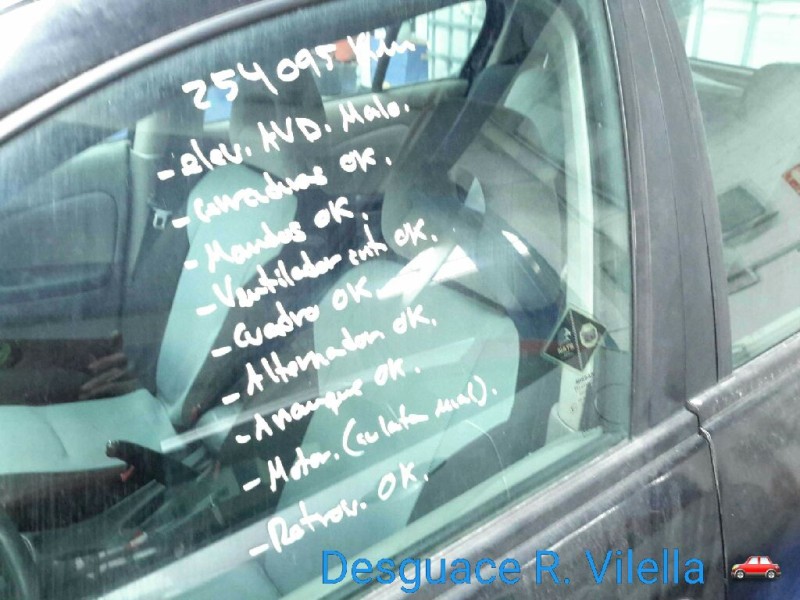 254095 Km
- elev. AVD. Malo.
- Cerraduras OK.
- Mandos OK.
- Ventilador int. OK.
- Cuadro OK
- Alternador OK.
- Arranque OK.
- Motor. (culata mal).
- Retrov. OK.
NISSAN
Desguace R. Vilella